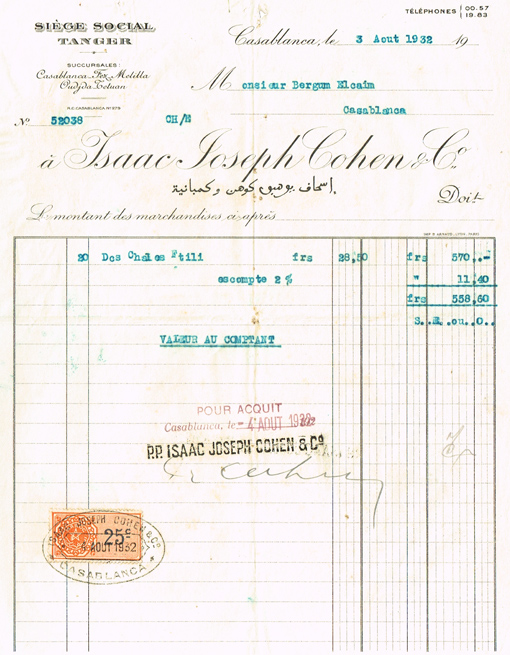 SIÈGE SOCIAL
TANGER
TÉLÉPHONES 00.57
19.63
SUCCURSALES:
Casablanca, Fez, Melilla
Oudjda, Tetuan
R.C. CASABLANCA Nº 279
Casablanca, le 3 Aout 1932 19
Monsieur Bergum Elcaim
Casablanca
Nº 52038 CH/E
à Isaac Joseph Cohen & Cº
إسحاق يوسف كوهن وكمبانية
Doit
Le montant des marchandises ci-après
20 Dos Chales Ftili frs 28,50 frs 570,.-
escompte 2 % " 11,40
frs 558,60
S..E..ou..O..
VALEUR AU COMPTANT
POUR ACQUIT
Casablanca, le - 4 AOUT 1932
P.P. ISAAC JOSEPH COHEN & Cº
ISAAC JOSEPH COHEN & Cº
25c
4 AOUT 1932
CASABLANCA